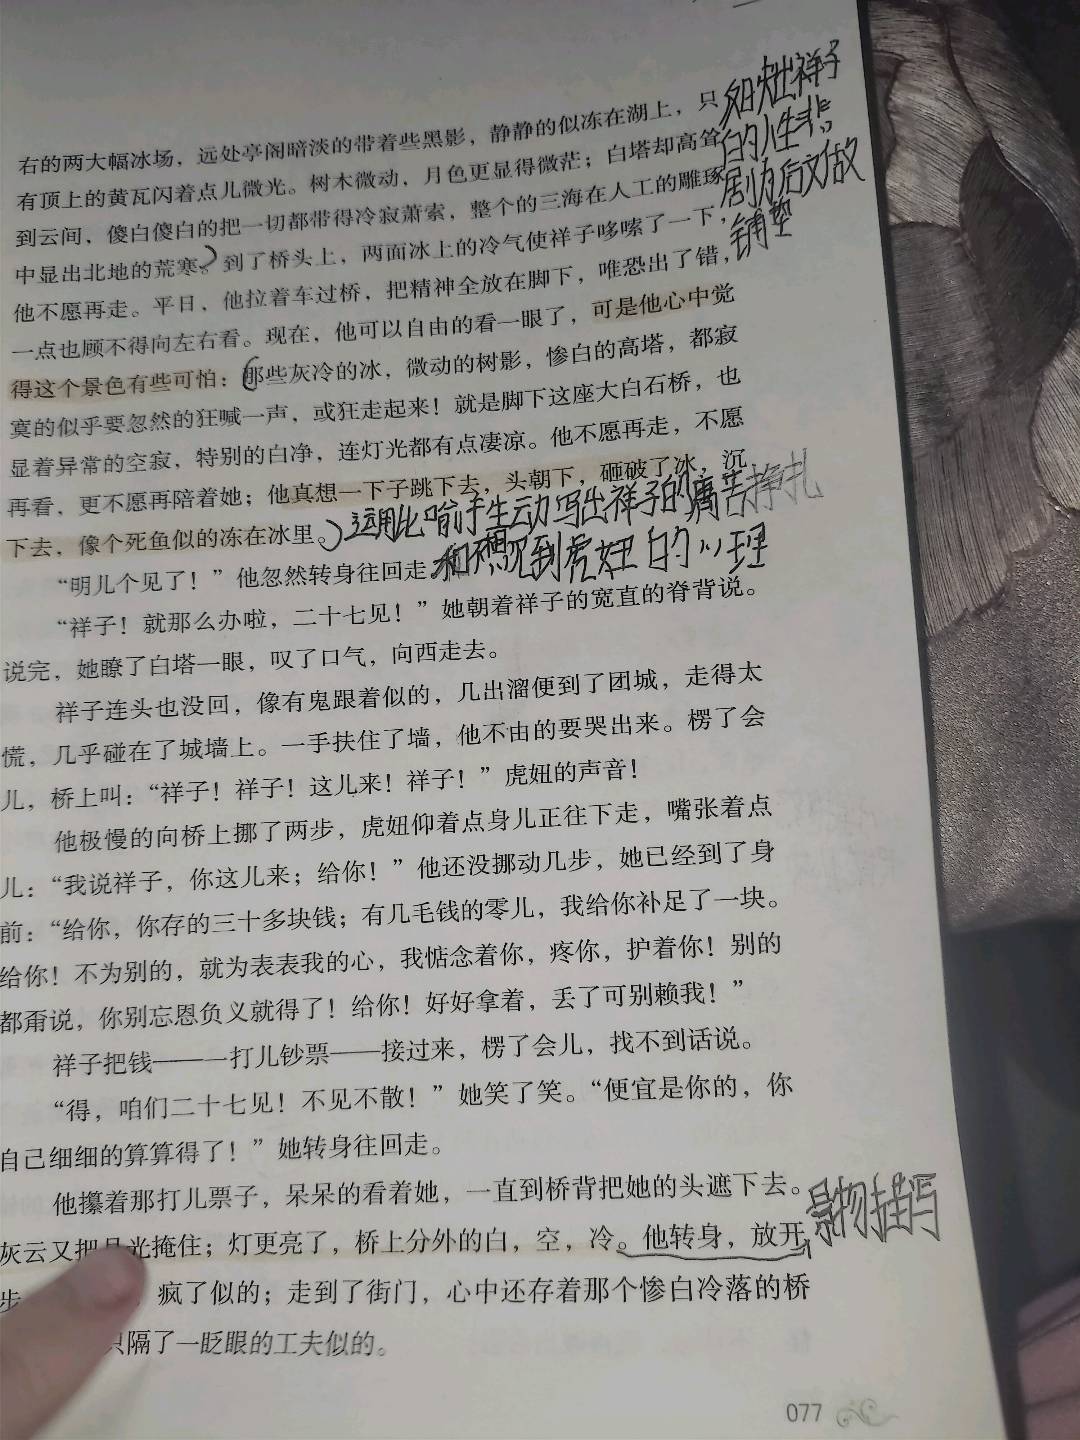 右的两大幅冰场，远处亭阁暗淡的带着些黑影，静静的似冻在湖上，只
有顶上的黄瓦闪着点儿微光。树木微动，月色更显得微茫；白塔却高耸
到云间，傻白傻白的把一切都带得冷寂萧索，整个的三海在人工的雕琢
中显出北地的荒寒。到了桥头上，两面冰上的冷气使祥子哆嗦了一下，
他不愿再走。平日，他拉着车过桥，把精神全放在脚下，唯恐出了错，
一点也顾不得向左右看。现在，他可以自由的看一眼了，可是他心中觉
得这个景色有些可怕：那些灰冷的冰，微动的树影，惨白的高塔，都寂
寞的似乎要忽然的狂喊一声，或狂走起来！就是脚下这座大白石桥，也
显着异常的空寂，特别的白净，连灯光都有点凄凉。他不愿再走，不愿
再看，更不愿再陪着她；他真想一下子跳下去，头朝下，砸破了冰，沉
下去，像个死鱼似的冻在冰里。
“明儿个见了！”他忽然转身往回走
“祥子！就那么办啦，二十七见！”她朝着祥子的宽直的脊背说。
说完，她瞭了白塔一眼，叹了口气，向西走去。
祥子连头也没回，像有鬼跟着似的，几出溜便到了团城，走得太
慌，几乎碰在了城墙上。一手扶住了墙，他不由的要哭出来。楞了会
儿，桥上叫：“祥子！祥子！这儿来！祥子！”虎妞的声音！
他极慢的向桥上挪了两步，虎妞仰着点身儿正往下走，嘴张着点
儿：“我说祥子，你这儿来；给你！”他还没挪动几步，她已经到了身
前：“给你，你存的三十多块钱；有几毛钱的零儿，我给你补足了一块。
给你！不为别的，就为表表我的心，我惦念着你，疼你，护着你！别的
都甭说，你别忘恩负义就得了！给你！好好拿着，丢了可别赖我！”
祥子把钱——一打儿钞票——接过来，楞了会儿，找不到话说。
“得，咱们二十七见！不见不散！”她笑了笑。“便宜是你的，你
自己细细的算算得了！”她转身往回走。
他攥着那打儿票子，呆呆的看着她，一直到桥背把她的头遮下去。
灰云又把月光掩住；灯更亮了，桥上分外的白，空，冷。他转身，放开
步 ，疯了似的；走到了街门，心中还存着那个惨白冷落的桥
只隔了一眨眼的工夫似的。
077
祥子
的人生悲
剧为后文做
铺垫
运用比喻手生动写出祥子的痛苦挣扎
和不想见到虎妞的心理
景物描写